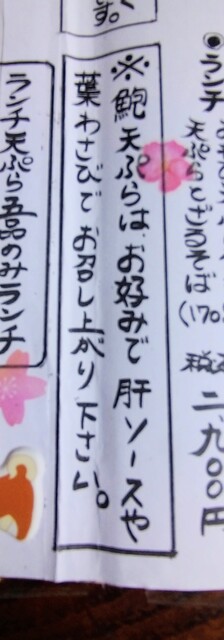 ◉ランチ
天ぷらとざるそば
(170
税込
二、九〇〇円
す。
※鮑天ぷらは、お好みで肝ソースや
葉わさびでお召し上がり下さい。
ランチ天ぷら五品のみランチ